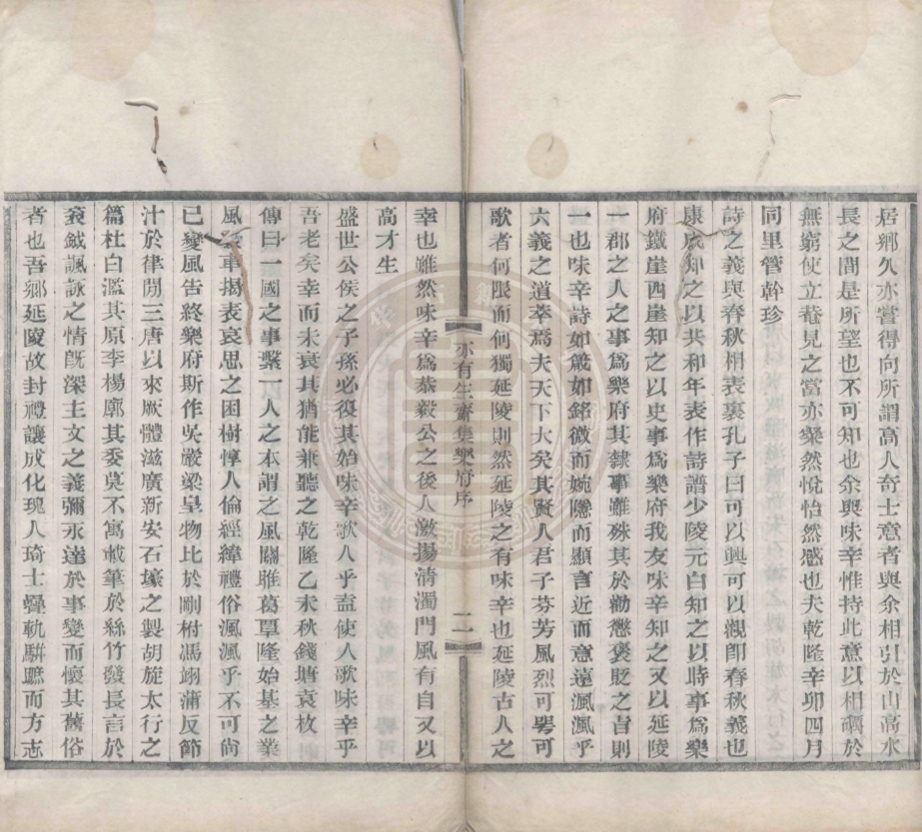 居鄉久亦當得向所謂高人奇士意者與余相引於山高水
長之間是所望也不可知也余與味辛惟持此意以相礪於
無窮使立菴見之當亦粲然悅怡然感也夫乾隆辛卯四月
同里管幹珍
詩之義與春秋相表裏孔子曰可以興可以觀卽春秋義也
康成知之以共和年表作詩譜少陵元白知之以時事爲樂
府鐵崖西崖知之以史事爲樂府我友味辛知之又以延陵
一郡之人之事爲樂府其隸事雖殊其於勸懲褒貶之旨則
一也味辛詩如箴如銘微而婉隱而顯言近而意遠渢渢乎
六義之道萃焉夫天下大矣其賢人君子芬芳風烈可號可
歌者何限而何獨延陵則然延陵之有味辛也延陵古人之
亦有生齋集樂府序 二
幸也雖然味辛爲恭毅公之後人激揚清濁門風有自又以
高才生
盛世公侯之子孫必復其始味辛歌八乎盍使人歌味辛乎
吾老矣幸而未衰其猶能兼聽之乾隆乙未秋錢塘袁枚
傳曰一國之事繫一人之本謂之風關雎葛覃隆始基之業
風 車揭表哀思之困樹惇人倫經緯禮俗渢渢乎不可尚
已變風告終樂府斯作吳嚴梁皇物比於剛柎馮翊蒲反節
汁於律閒三唐以來厥體滋廣新安石壕之製胡旋太行之
篇杜白濫其原李楊廓其委莫不寓載筆於絲竹發長言於
袞鉞諷詠之情旣深主文之義彌永達於事變而懷其舊俗
者也吾鄉延陵故封禮讓成化瑰人琦士疊軌騈鑣而方志